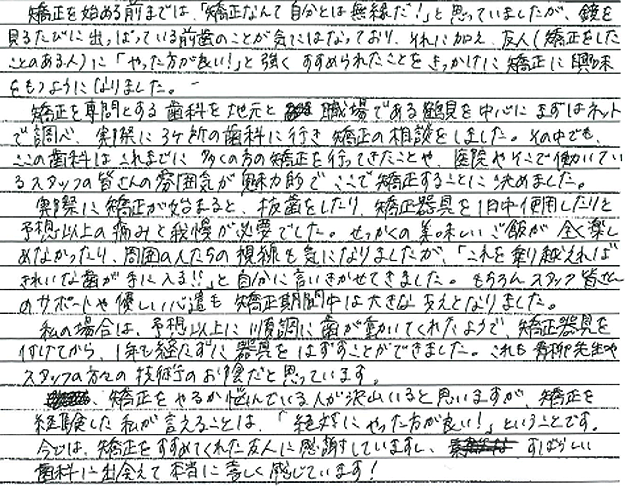 矯正を始める前までは、「矯正なんて自分とは無縁だ!」と思っていましたが、鏡を
見るたびに出っぱっている前歯のことが気にはなっており、それに加え、友人(矯正をした
ことのある人)に「やった方が良い!」と強くすすめられたことをきっかけに矯正に興味
をもつようになりました。
矯正を専門とする歯科を地元と職場である鶴見を中心にまずはネット
で調べ、実際に3ヶ所の歯科に行き矯正の相談をしました。その中でも、
ここの歯科はこれまでに多くの方の矯正を行ってきたことや、医院やそこで働いてい
るスタッフの皆さんの雰囲気が魅力的でここで矯正することに決めました。
実際に矯正が始まると、抜歯をしたり、矯正器具を1日中使用したりと
予想以上の痛みと我慢が必要でした。せっかくの美味しいご飯が全く楽し
めなかったり、周囲の人たちの視線も気になりましたが、「これを乗り越えれば
きれいな歯が手に入る!!」と自分に言いきかせてきました。もちろんスタッフ皆さん
のサポートや優しい心遣も矯正期間中は大きな支えとなりました。
私の場合は、予想以上に順調に歯が動いてくれたようで、矯正器具を
付けてから、1年も経たずに器具をはずすことができました。これも青柳先生や
スタッフの方々の技術等のお陰だと思っています。
矯正をやるか悩んでいる人が沢山いると思いますが、矯正を
経験した私が言えることは、「絶対にやった方が良い!」ということです。
今では、矯正をすすめてくれた友人に感謝していますし、すばらしい
歯科に出会えて本当に嬉しく感じています!